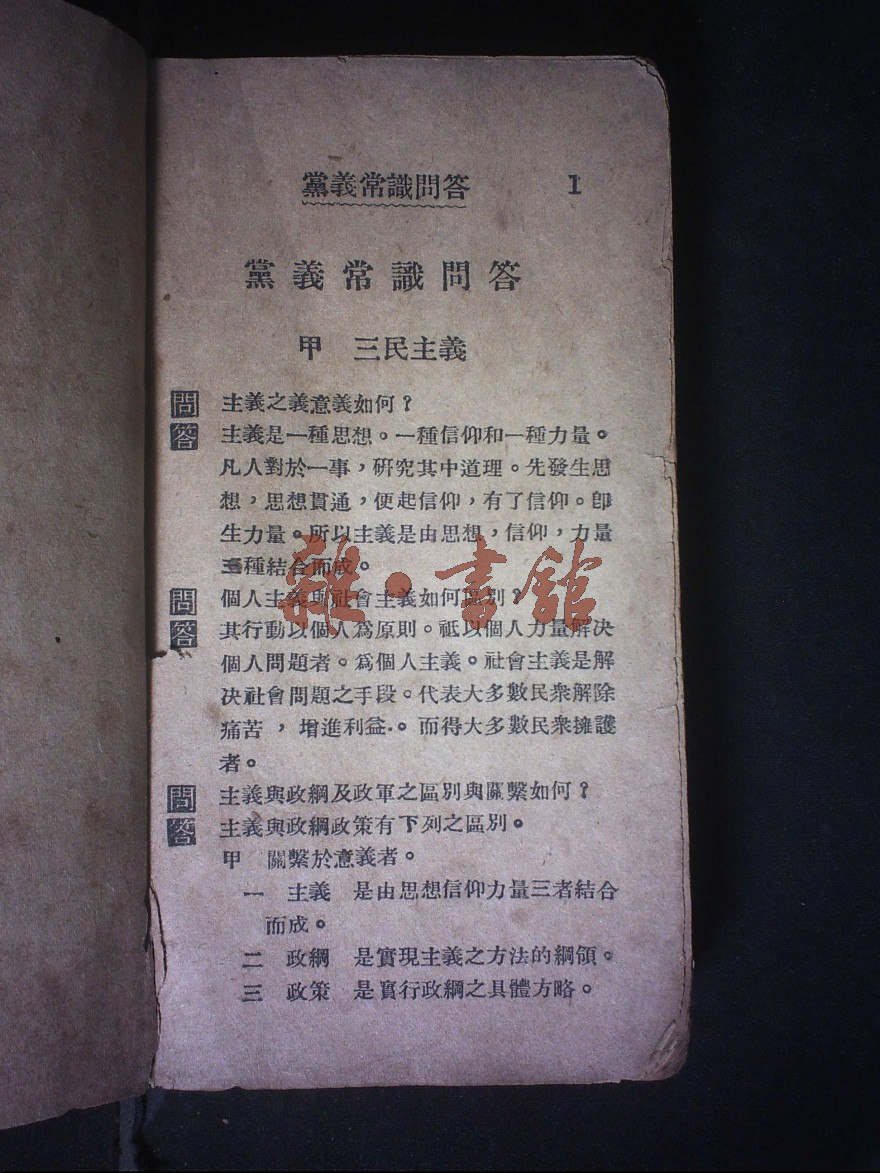 黨義常識問答 1
黨義常識問答
甲 三民主義
問 主義之義意義如何？
答 主義是一種思想。一種信仰和一種力量。
凡人對於一事，研究其中道理。先發生思
想，思想貫通，便起信仰，有了信仰。卽
生力量。所以主義是由思想，信仰，力量
三種結合而成。
問 個人主義與社會主義如何區別？
答 其行動以個人爲原則。祗以個人力量解决
個人問題者。爲個人主義。社會主義是解
决社會問題之手段。代表大多數民衆解除
痛苦，增進利益·。而得大多數民衆擁護
者。
問 主義與政綱及政軍之區別與關繫如何？
答 主義與政綱政策有下列之區別。
甲 關繫於意義者。
一 主義 是由思想信仰力量三者結合
而成。
二 政綱 是實現主義之方法的綱領。
三 政策 是實行政綱之具體方略。
雜·書館